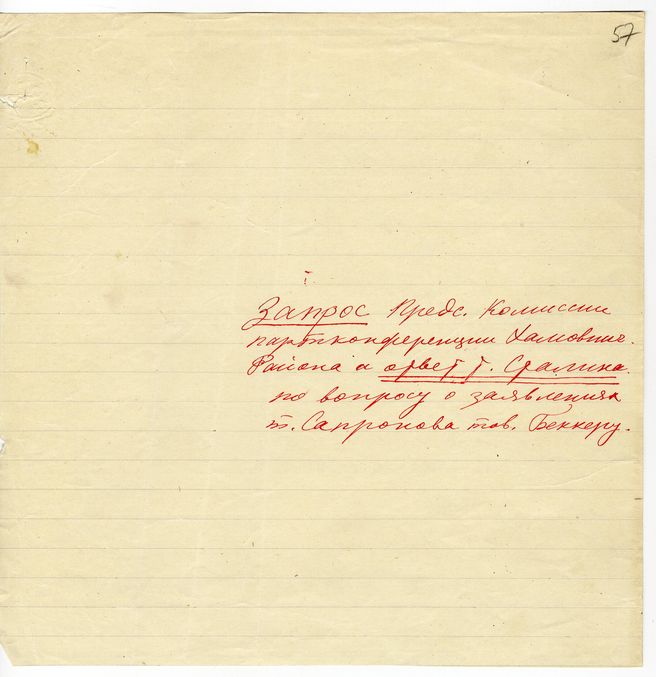 57
Запрос Предс. Комиссии
партконференции Хамовнич.
Района и ответ т. Сталина
по вопросу о заявлениях
т. Сапронова тов. Беккеру.